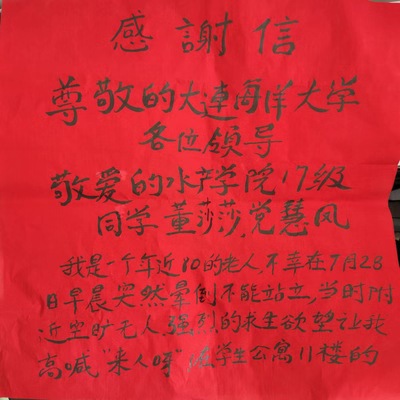 感謝信
尊敬的大連海洋大学
各位领导
敬爱的水产学院17级
同学董莎莎,党慧凤
我是一个年近80的老人,不幸在7月28
日早晨突然晕倒不能站立,当时附
近空旷无人,强烈的求生欲望让我
高喊"来人呀"学生公寓11楼的